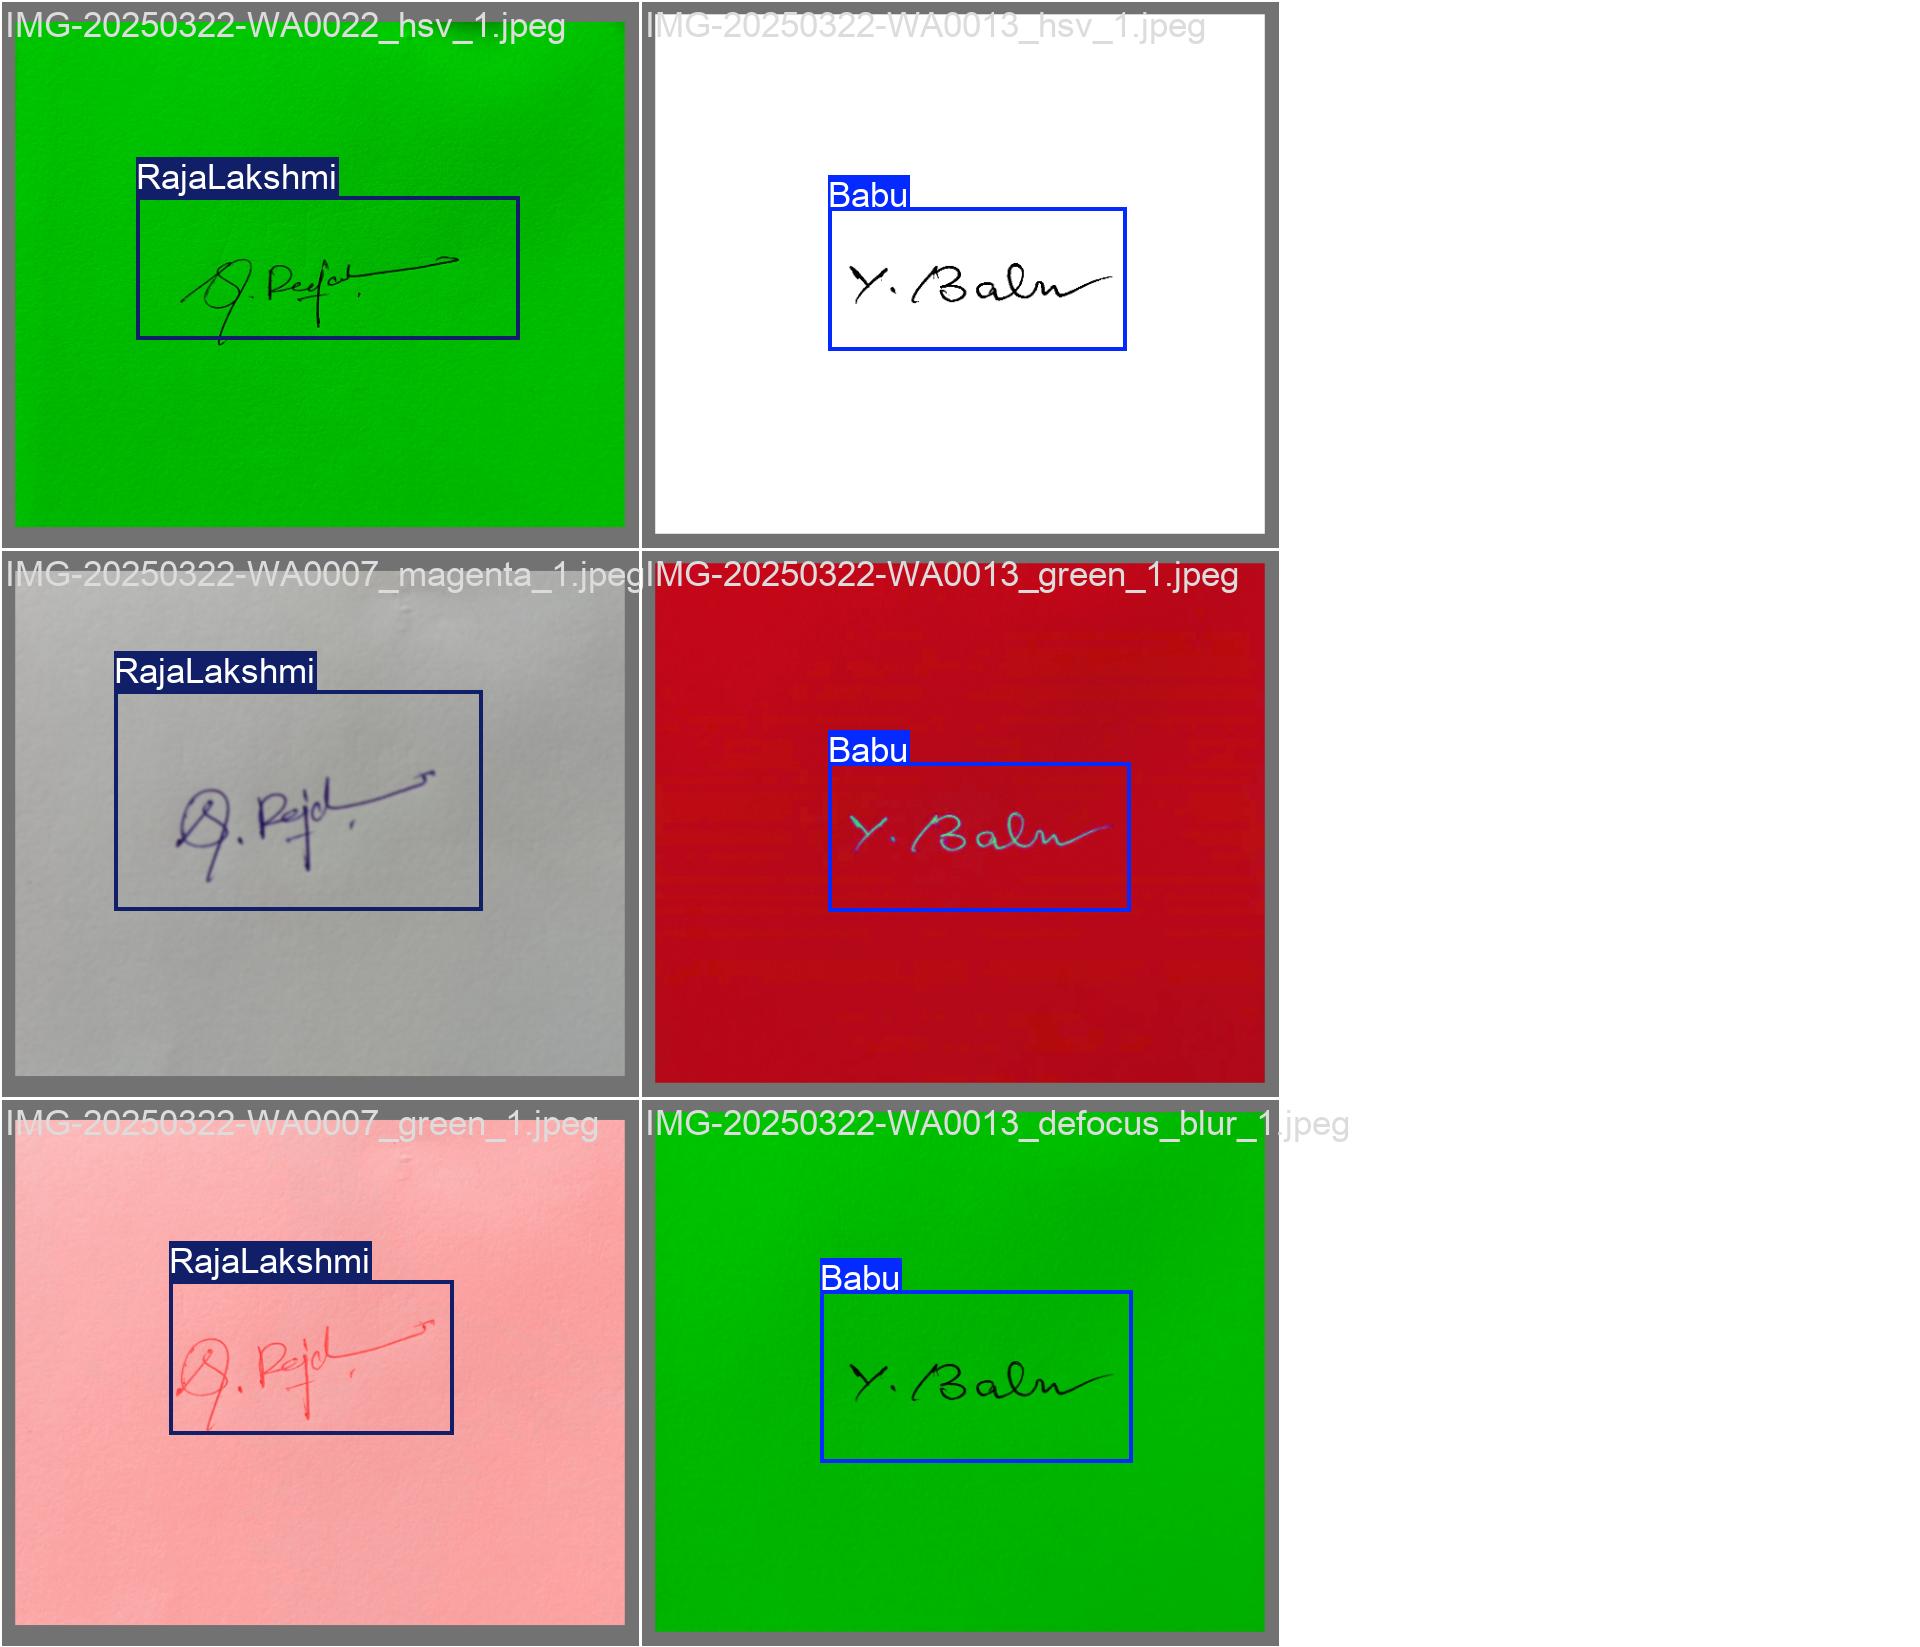 IMG-20250322-WA0022_hsv_1.jpeg
RajaLakshmi
IMG-20250322-WA0013_hsv_1.jpeg
Babu
Y. Babu
IMG-20250322-WA0007_magenta_1.jpeg
RajaLakshmi
IMG-20250322-WA0013_green_1.jpeg
Babu
Y. Babu
IMG-20250322-WA0007_green_1.jpeg
RajaLakshmi
IMG-20250322-WA0013_defocus_blur_1.jpeg
Babu
Y. Babu